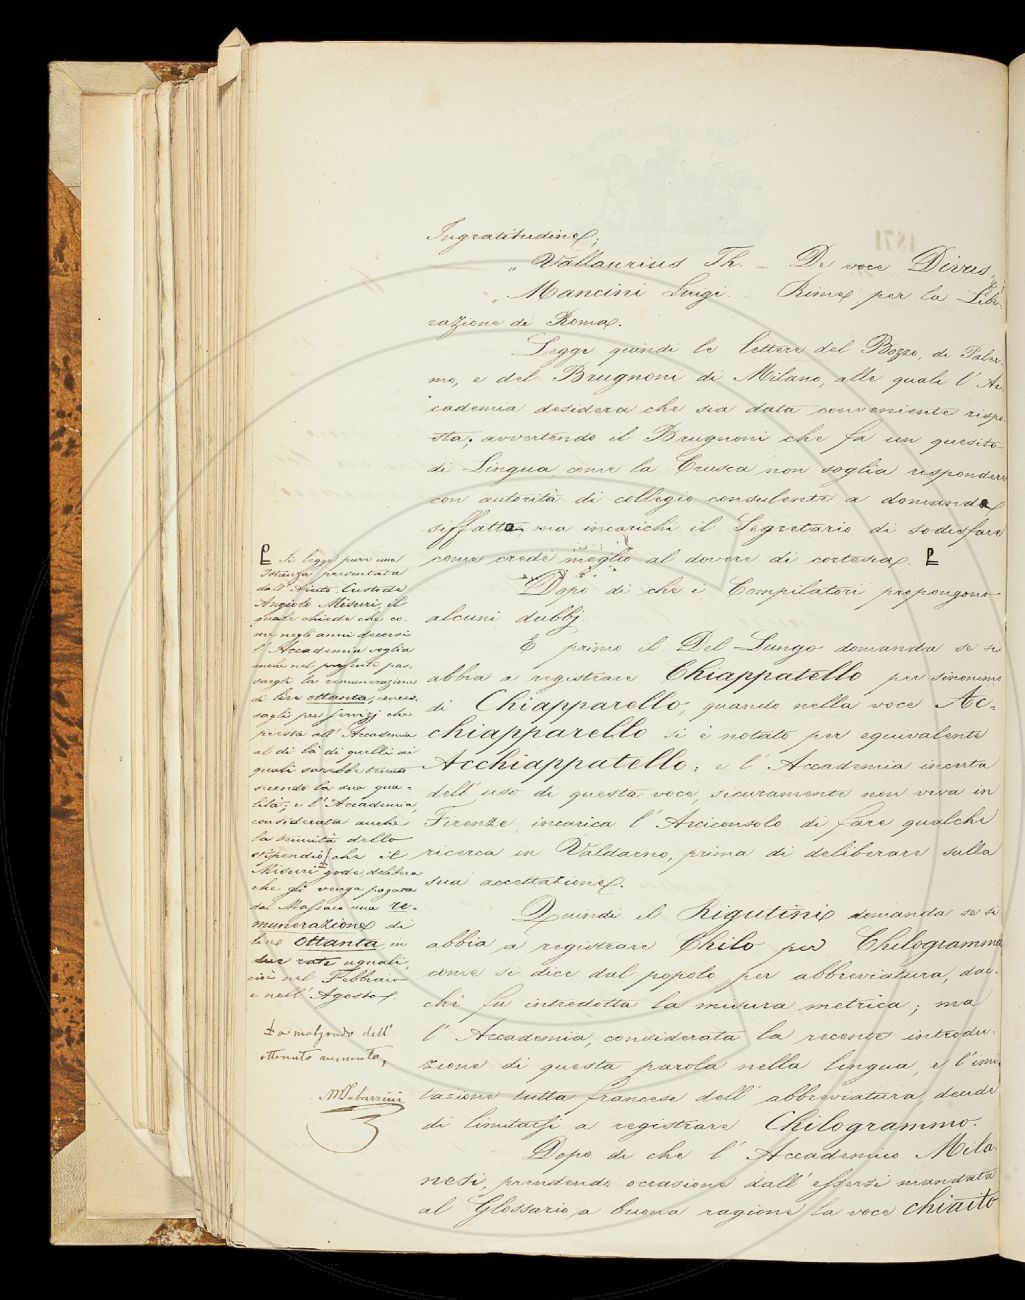 Ingratitudine;
„ Vallaurius Th. — De voce Divus,
Mancini Luigi — Rime per la Libe-
razione di Roma.
Legge quindi le lettere del Bozzo, di Paler-
mo, e del Brugnoni di Milano, alle quali l' Ac-
cademia desidera che sia data conveniente rispo-
sta; avvertendo il Brugnoni che fa un quesito
di Lingua come la Crusca non soglia rispondere
con autorità di collegio consulente a domande
siffatte, ma incarichi il Segretario di sodisfare
come crede meglio al dovere di cortesia.
Dopo di che i Compilatori propongono
alcuni dubbj
E primo il Del Lungo domanda se si
abbia a registrare Chiappatello per sinonimo
di Chiapparello, quando nella voce Ac-
chiapparello si è notato per equivalente
Acchiappatello; e l' Accademia incerta
dell' uso di questa voce, sicuramente non viva in
Firenze, incarica l' Arciconsolo di fare qualche
ricerca in Valdarno, prima di deliberare sulla
sua accettazione.
Quindi il Rigutini domanda se si
abbia a registrare Chilo per Chilogrammo
come si dice dal popolo per abbreviatura, dac-
chè fu introdotta la misura metrica; ma
l' Accademia, considerata la recente introdu-
zione di questa parola nella lingua, e l' imi-
tazione tutta francese dell' abbreviatura, decide
di limitarsi a registrare Chilogrammo.
Dopo di che l' Accademico Mila-
nesi, prendendo occasione dall' essersi mandata
al Glossario, a buona ragione la voce chiaito
Si legge pure una
Istanza presentata
dall' Aiuto-Custode
Angiolo Misuri, il
quale chiede che co-
me negli anni decorsi
l' Accademia voglia
anche nel presente pas-
sargli la remunerazione
di lire ottanta, conces-
sagli per servizj che
presta all' Accademia
al di là di quelli ai
quali sarebbe tenuto
secondo la sua qua-
lità; e l' Accademia
considerata anche
la tenuità dello
stipendio che il
Misuri gode, delibera
che gli venga pagata
dal Massaio una re-
munerazione di
lire ottanta, in
due rate uguali,
cioè nel Febbraio
e nell' Agosto.
a malgrado dell'
ottenuto aumento,
MTabarrini